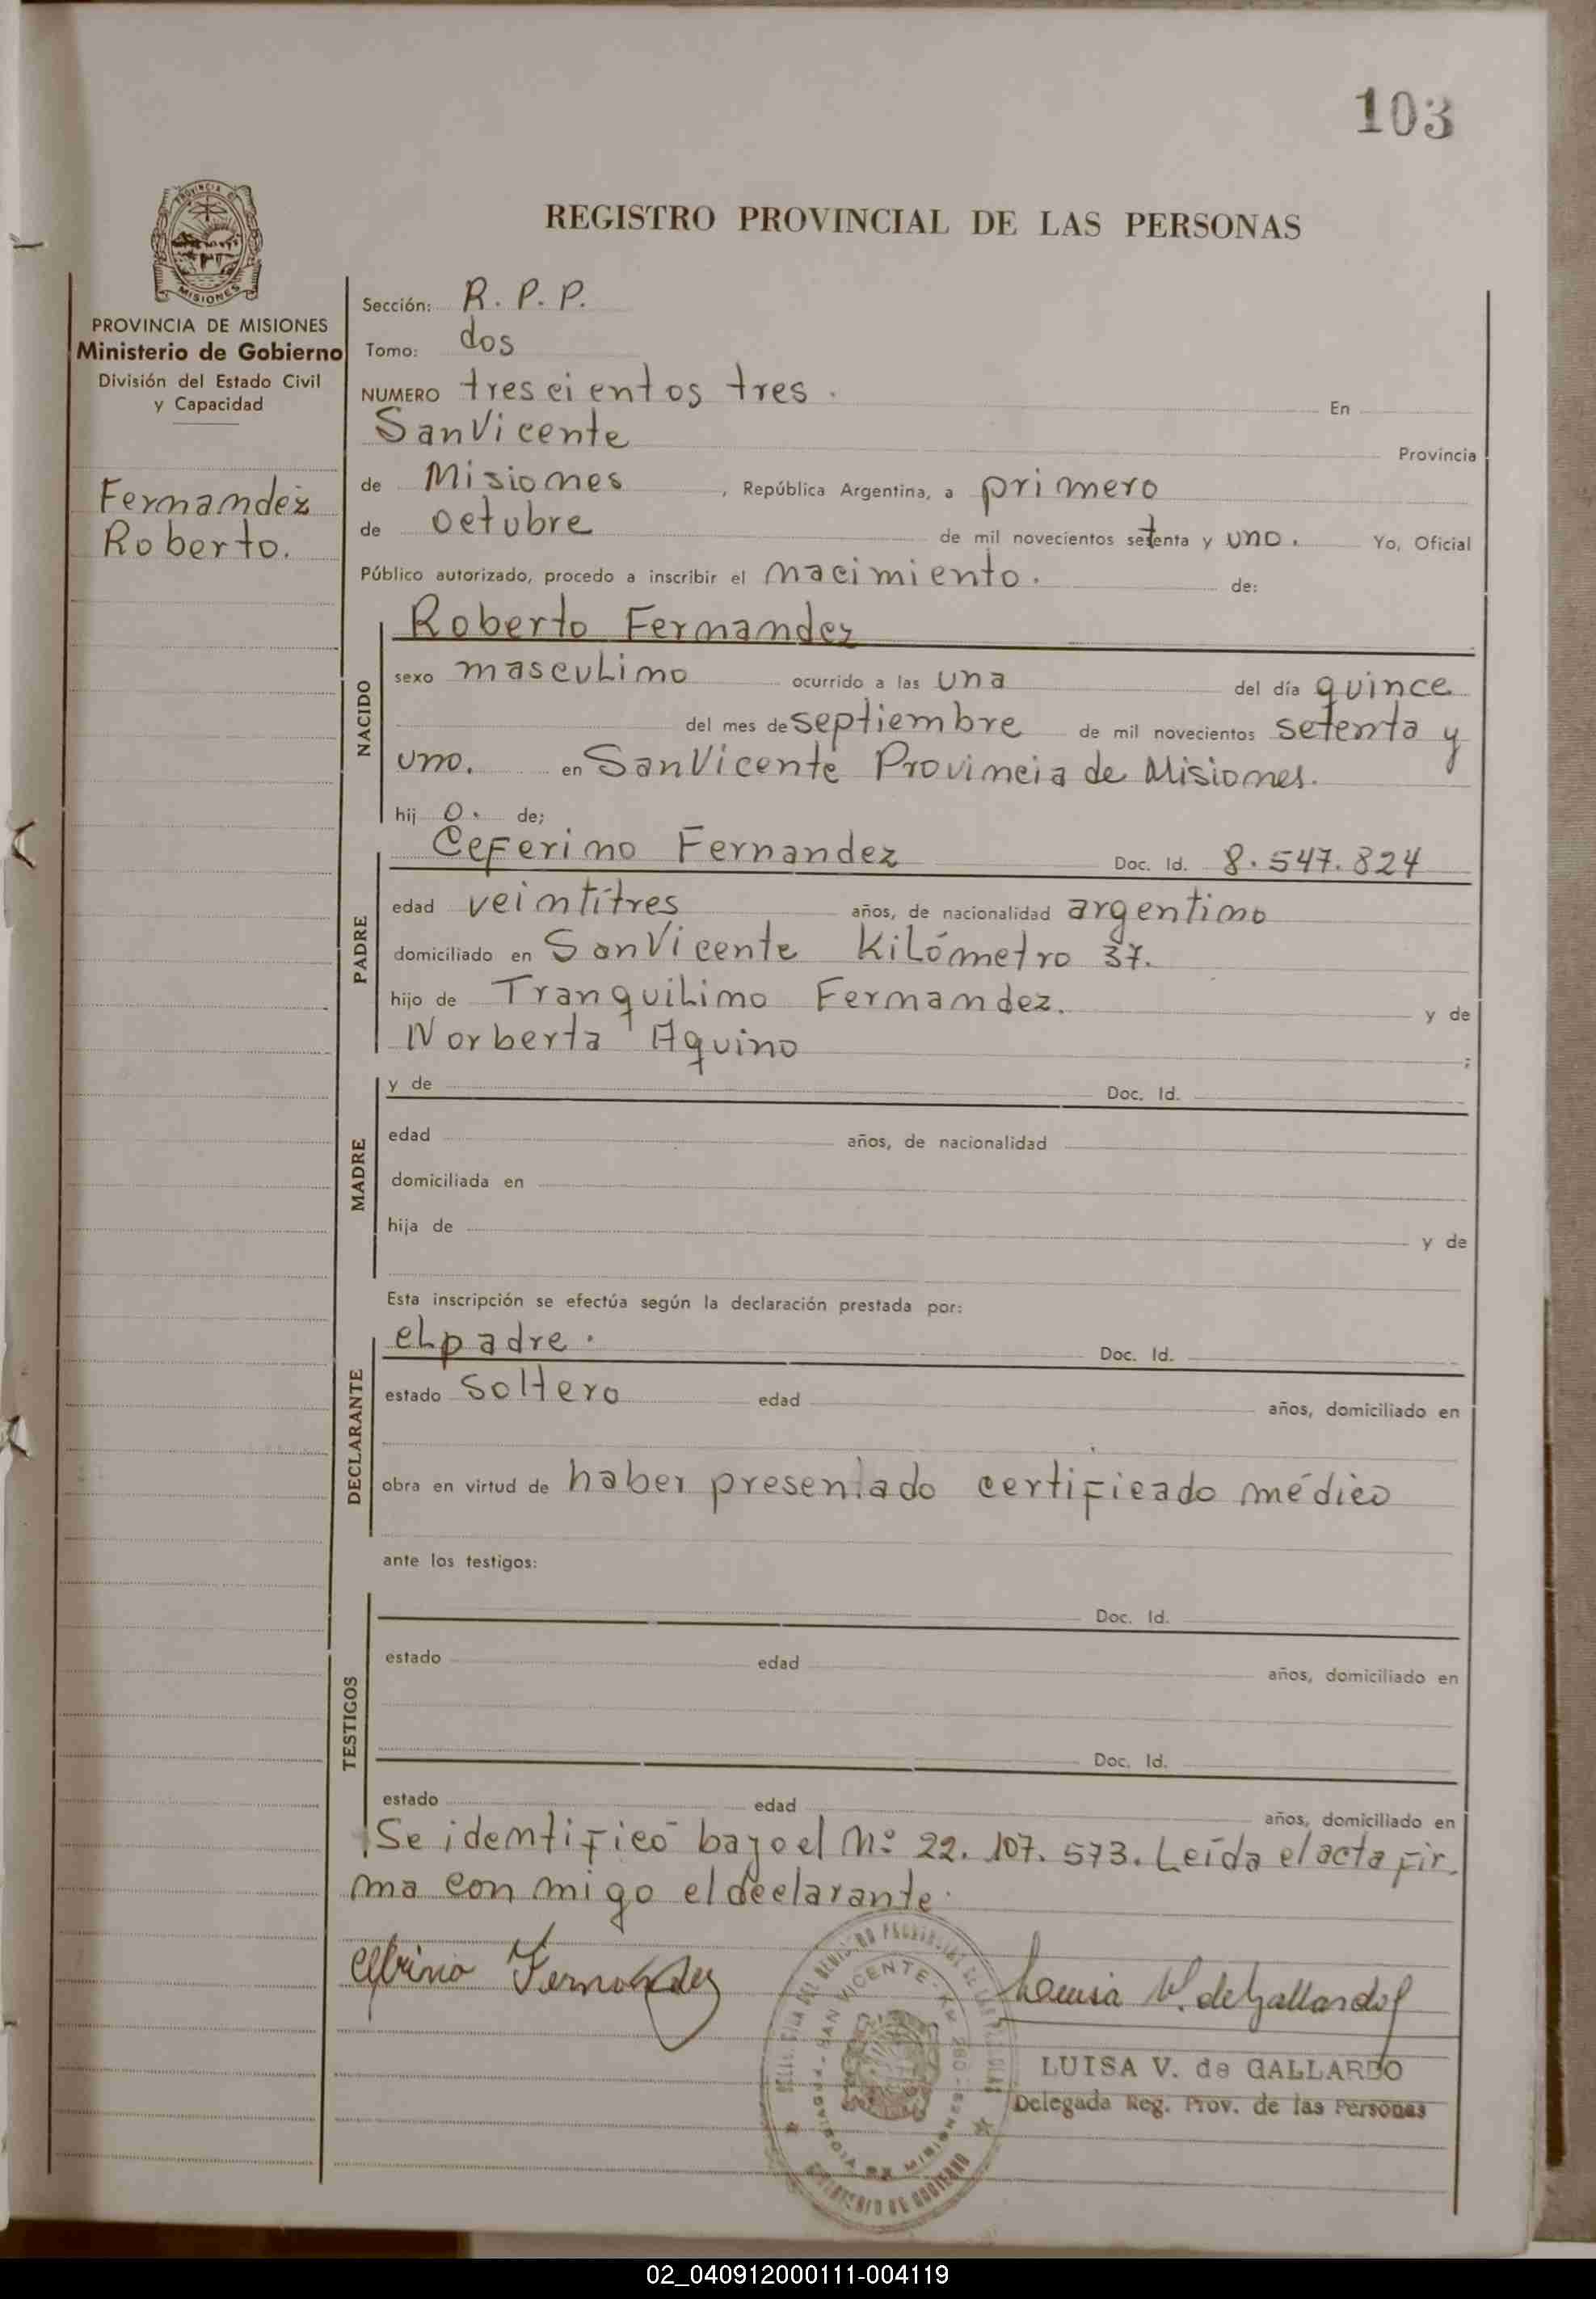 103
REGISTRO PROVINCIAL DE LAS PERSONAS
PROVINCIA DE MISIONES
PROVINCIA DE MISIONES
Ministerio de Gobierno
División del Estado Civil
y Capacidad
Fernandez
Roberto.
Sección: R. P. P.
Tomo: dos
NUMERO trescientos tres. En
San Vicente Provincia
de Misiones, República Argentina, a primero
de octubre de mil novecientos setenta y uno. Yo, Oficial
Público autorizado, procedo a inscribir el nacimiento. de:
NACIDO
Roberto Fernandez
sexo masculino ocurrido a las una del día quince
del mes de septiembre de mil novecientos setenta y
uno. en San Vicente Provincia de Misiones.
hijo. de;
PADRE
Ceferino Fernandez Doc. Id. 8.547.824
edad veintitres años, de nacionalidad argentino
domiciliado en San Vicente Kilómetro 37.
hijo de Tranquilino Fernandez. y de
Norberta Aquino ;
MADRE
y de Doc. Id.
edad años, de nacionalidad
domiciliada en
hija de y de
Esta inscripción se efectúa según la declaración prestada por:
DECLARANTE
el padre. Doc. Id.
estado soltero edad años, domiciliado en
obra en virtud de haber presentado certificado médico
ante los testigos:
TESTIGOS
Doc. Id.
estado edad años, domiciliado en
Doc. Id.
estado edad años, domiciliado en
Se identificó bajo el Nº 22.107.573. Leída el acta fir-
ma con migo el declarante.
Fernandez
Luisa V. de Gallardo
SAN VICENTE - Km 280 - MISIONES
MINISTERIO DE GOBIERNO
LUISA V. de GALLARDO
Delegada Reg. Prov. de las Personas
02_040912000111-004119